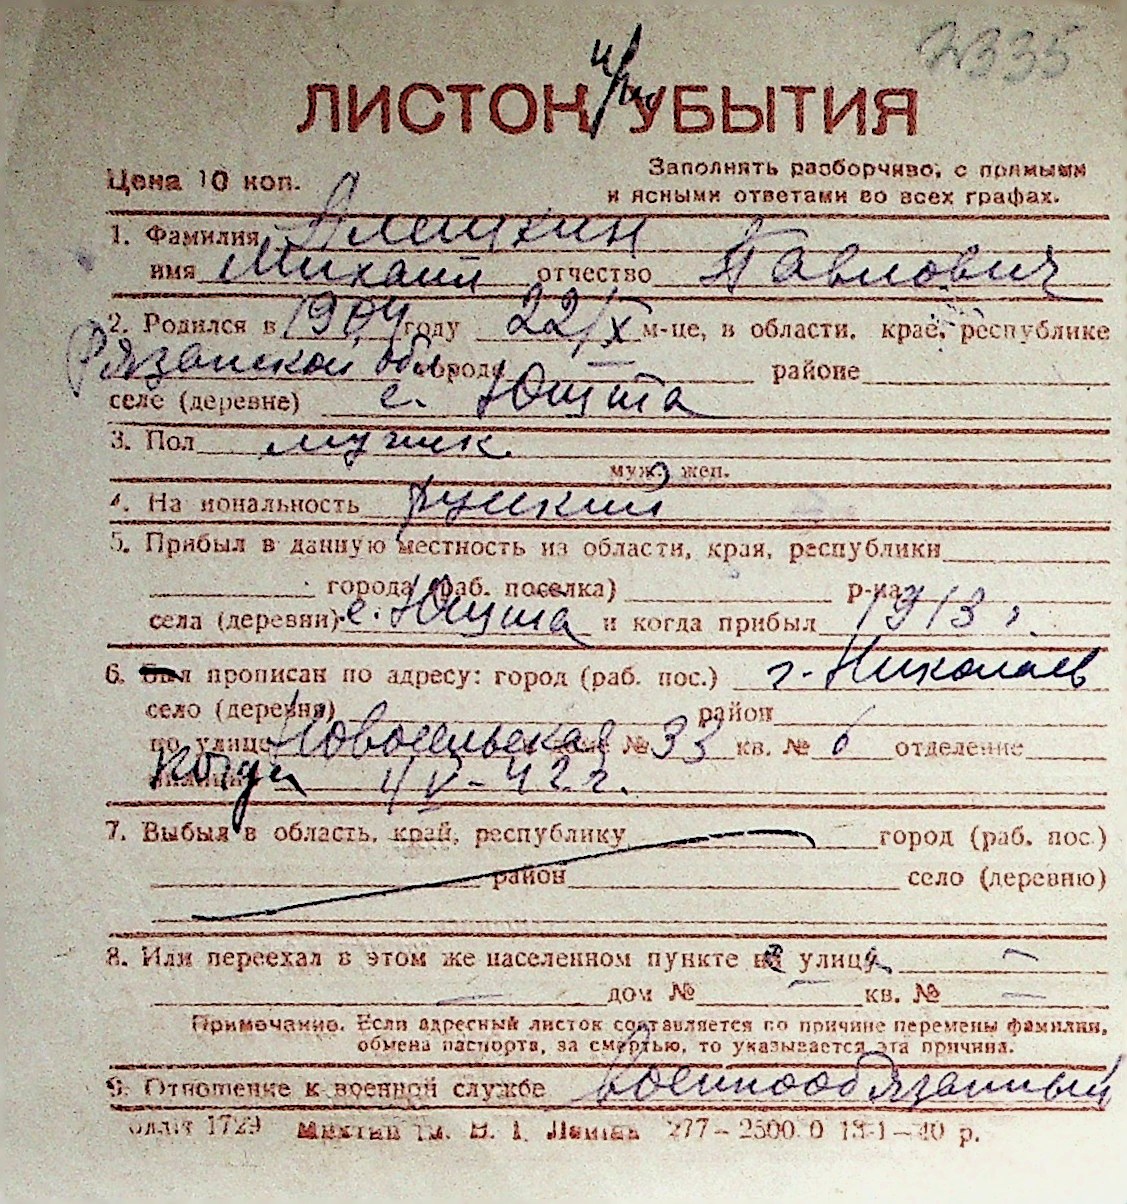 2335
ЛИСТОК УБЫТИЯ
Цена 10 коп.
Заполнять разборчиво, с прямыми
и ясными ответами во всех графах.
1. Фамилия Алешкин
имя Михаил отчество Павлович
2. Родился в 1904 году 22/X м-це, в области, крае, республике
Рязанской обл. городе районе
селе (деревне) с. Ющта
3. Пол мужск.
муж. жен.
4. Национальность русский
5. Прибыл в данную местность из области, края, республики
города (раб. поселка) р-на
села (деревни) с. Ющта и когда прибыл 1913 г.
6. Был прописан по адресу: город (раб. пос.) г. Николаев
село (деревня) район
по улице Новосельская № 33 кв. № 6 отделение
когда 4/V-42 г.
7. Выбыл в область, край, республику город (раб. пос.)
район село (деревню)
8. Или переехал в этом же населенном пункте на улицу –
– дом № – кв. № –
Примечание. Если адресный листок составляется по причине перемены фамилии,
обмена паспорта, за смертью, то указывается эта причина.
9. Отношение к военной службе Военнообязанный
1729 им. В. І. Леніна 277–2500.0 13-1–40 р.